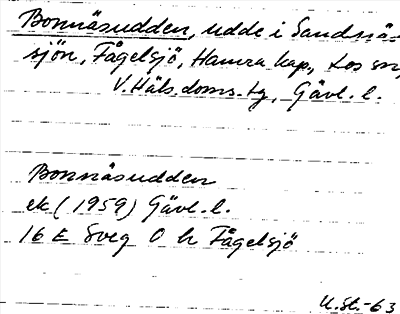 Bonnäsudden, udde i Sandsjö-
sjön, Fågelsjö, Hamra kap., Los sn,
V. Häls. doms. tg, Gävl. l.
Bonnäsudden
ek (1959) Gävl. l.
16 E Sveg O h Fågelsjö
U. St. -63